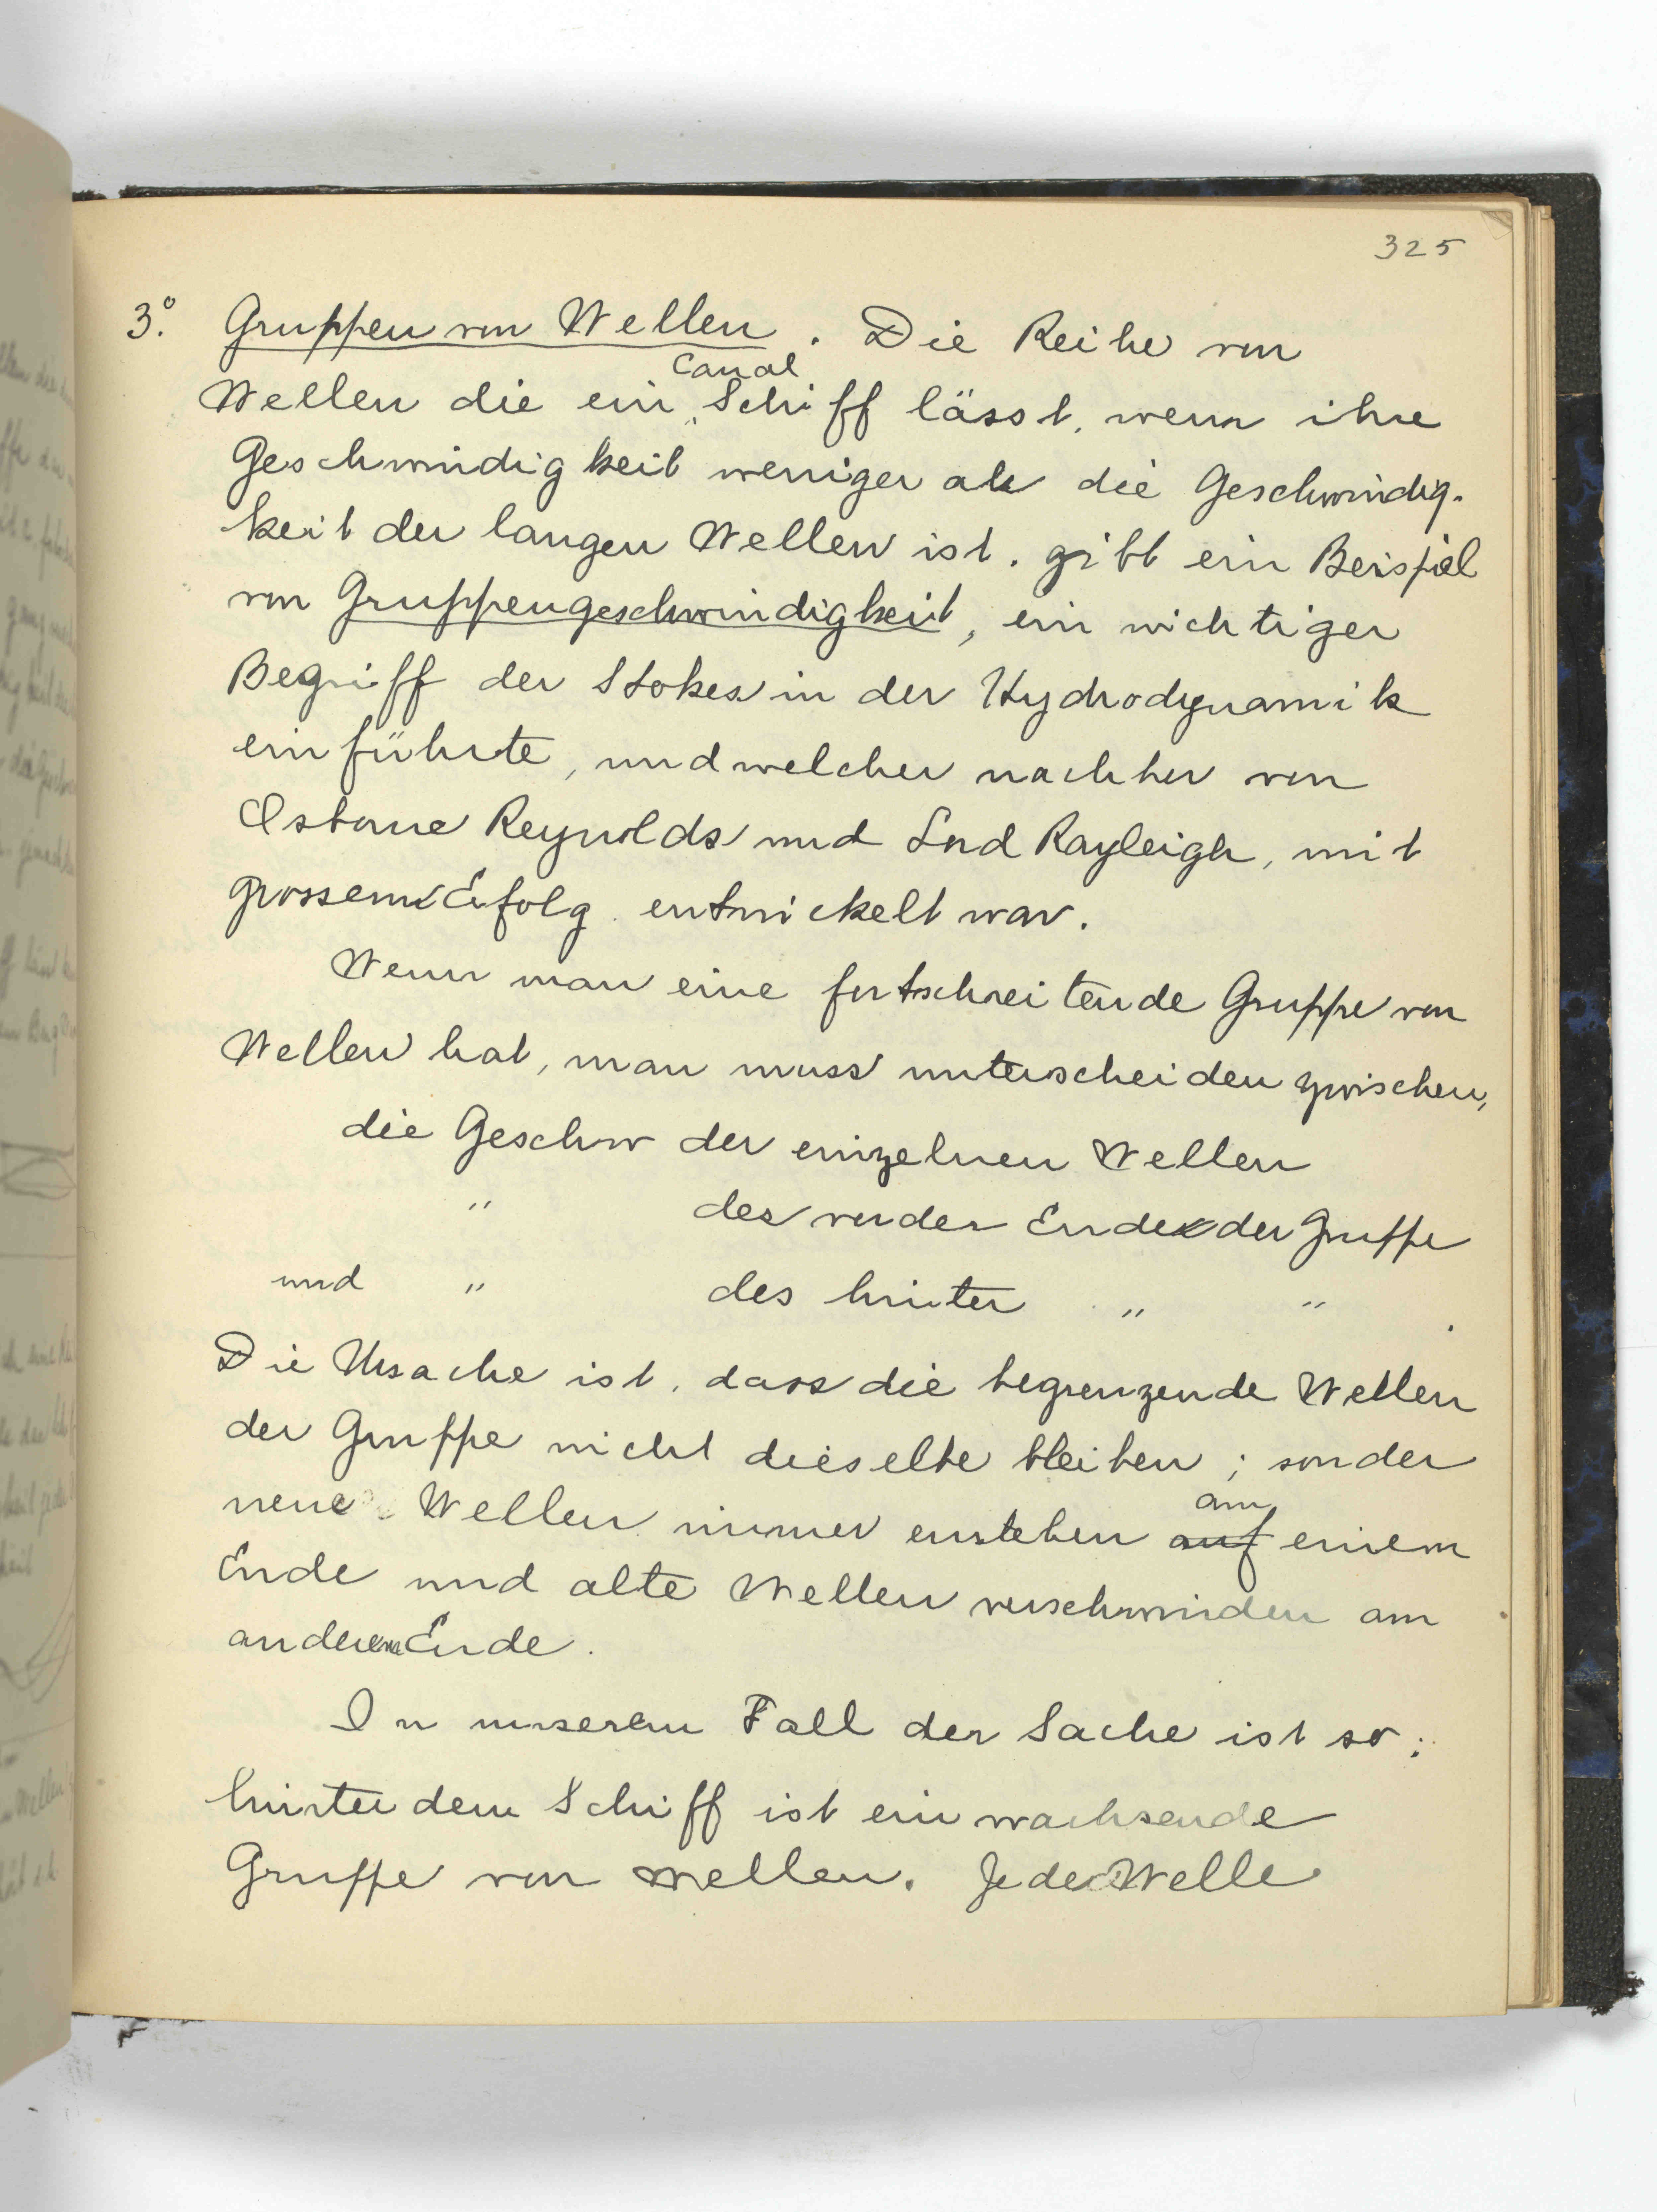 325
3.° Gruppen von Wellen. Die Reihe von
Canal
Wellen die ein Schiff lässt, wenn ihre
Geschwindigkeit weniger als die Geschwindig-
keit der langen Wellen ist. gibt ein Beispiel
von Gruppengeschwindigkeit, ein wichtiger
Begriff der Stokes in der Hydrodynamik
einführte, und welcher nachher von
Osborne Reynolds und Lord Rayleigh, mit
grossem Erfolg entwickelt war.
Wenn man eine fortschreitende Gruppe von
Wellen hat, man muss unterscheiden zwischen,
die Geschw der einzelnen Wellen
" des vorder Ende der Gruppe
und " des hinter " " .
Die Ursache ist, dass die begrenzende Wellen
der Gruppe nicht dieselbe bleiben; sonder
am
neue Wellen immer enstehen auf einem
Ende und alte Wellen verschwinden am
anderem Ende.
In unserem Fall der Sache ist so:
hinter dem Schiff ist ein wachsende
Gruppe von Wellen. Jede Welle